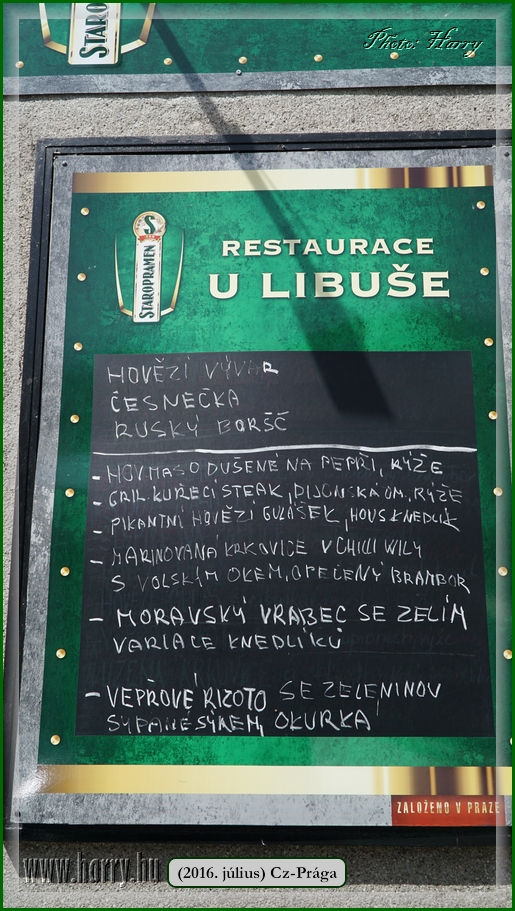 STAROPRAMEN
Photo: Harry
STAROPRAMEN
RESTAURACE
U LIBUŠE
HOVĚZÍ VÝVAR
ČESNEČKA
RUSKÝ BORŠČ
- HOV. MASO DUŠENÉ NA PEPŘI, RÝŽE
- GRIL. KUŘECÍ STEAK, DIJONSKÁ OM, RÝŽE
- PIKANTNÍ HOVĚZÍ GULÁŠEK, HOUS KNEDLÍK
- MARINOVANÁ KRKOVICE V CHILLI WILY
S VOLSKÝM OKEM, OPEČENÝ BRAMBOR
- MORAVSKÝ VRABEC SE ZELÍM
VARIACE KNEDLÍKŮ
- VEPŘOVÉ RIZOTO SE ZELENINOU
SYPANÉ SÝREM, OKURKA
ZALOŽENO V PRAZE
www.harry.hu
(2016. július) Cz-Prága